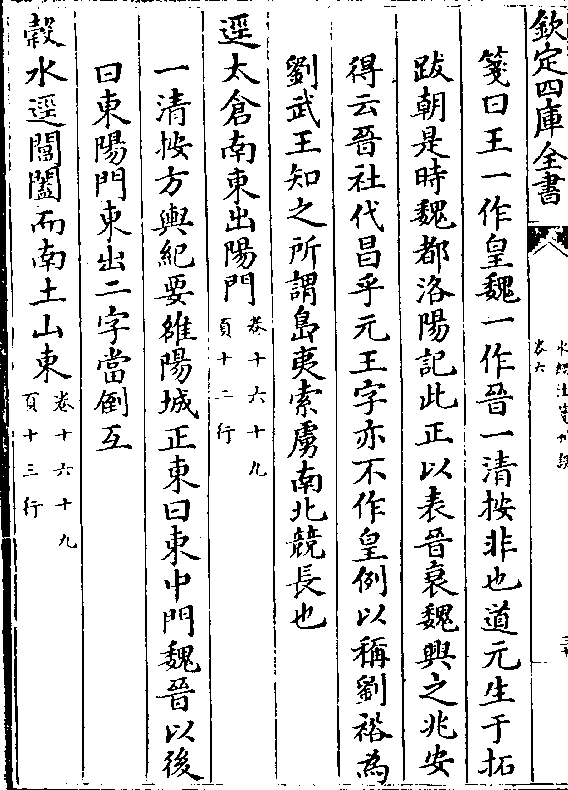 欽定四庫全書
水經注箋刊誤
卷六
箋曰王一作皇魏一作晉一清按非也道元生于拓
跋朝是時魏都洛陽記此正以表晉衰魏興之兆安
得云晉社代昌乎元王字亦不作皇例以稱劉裕為
劉武王知之所謂島夷索虜南北競長也
逕太倉南東出陽門卷十六十九頁十二行
一清按方輿紀要維陽城正東曰東中門魏晉以後
曰東陽門東出二字當倒互
穀水逕閶闔而南土山東卷十六十九頁十三行